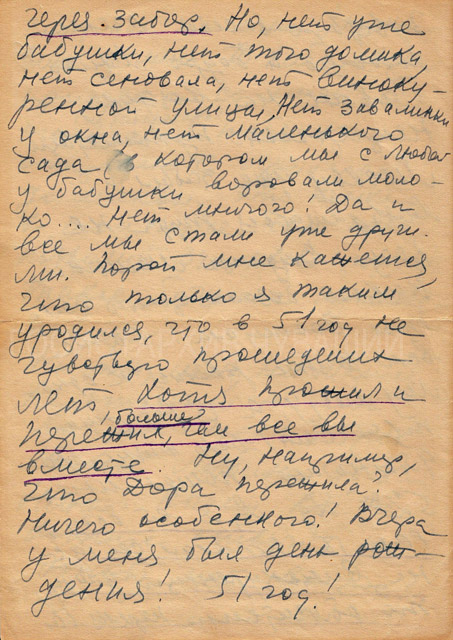 через забор. Но, нет уже
бабушки, нет того домика,
нет сеновала, нет виноку-
ренной улицы. Нет завалинки
у окна, нет маленького
сада, в котором мы с Любой
у бабушки воровали моло-
ко.... нет многого! Да и
все мы стали уже други-
ми. Порой мне кажется,
что только я таким
уродился, что в 51 год не
чувствую прошедших
лет. Хотя прожил и
больше
пережил, чем все вы
вместе. Ну, например,
что Дора пережила?
Ничего особенного! Вчера
у меня был день рож-
дения! 51 год!